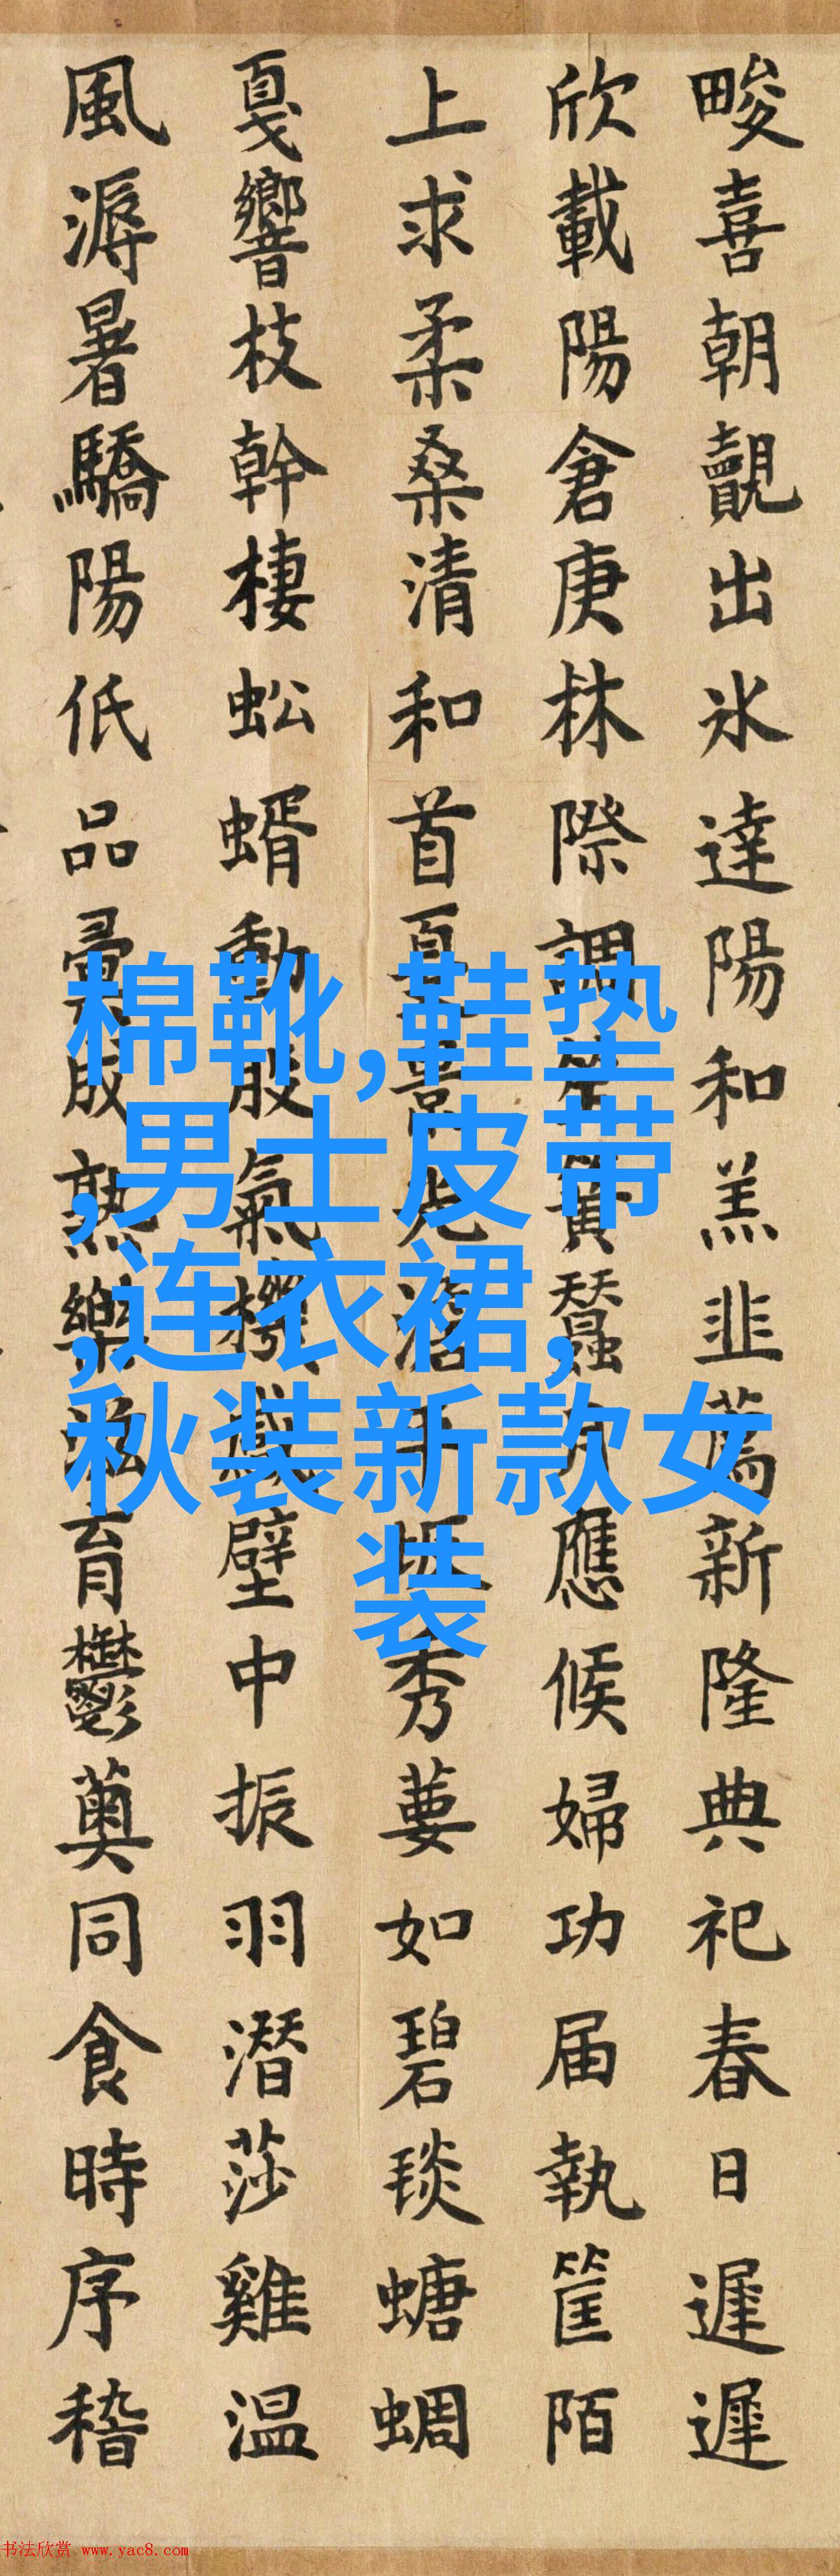 畯喜朝覿出冰達陽和羔韭薦新隆典祀春日遲遲
欣載陽倉庚林際調簧蠶應候婦功届執筐陌
上求柔桑清和首夏秀葽如碧琰螗蜩
戛響枝幹棲蚣蝑動股氣壁中振羽潛莎雞温
風溽暑驕陽低品彙成熟樂育鬱薁同食時序稽
棉靴,鞋垫
,男士皮带
,连衣裙,
秋装新款女
装
书法欣赏 www.yac8.com